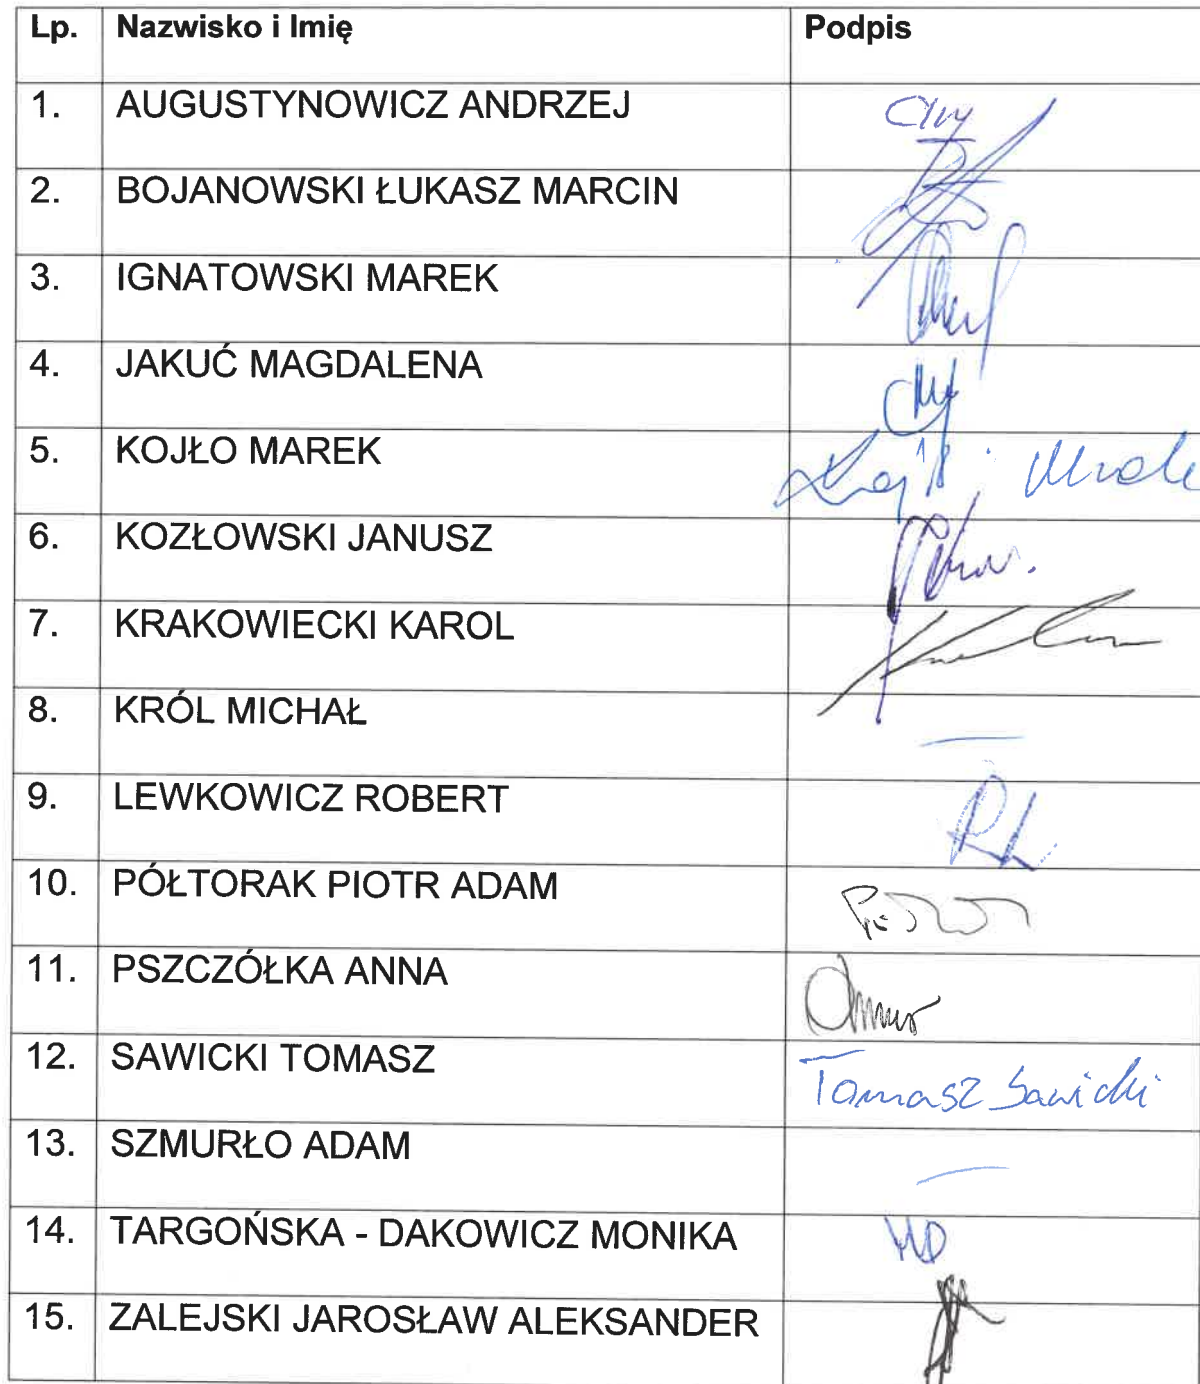 Lp. Nazwisko i Imię Podpis
1. AUGUSTYNOWICZ ANDRZEJ
2. BOJANOWSKI ŁUKASZ MARCIN
3. IGNATOWSKI MAREK
4. JAKUĆ MAGDALENA
5. KOJŁO MAREK
6. KOZŁOWSKI JANUSZ
7. KRAKOWIECKI KAROL
8. KRÓL MICHAŁ
9. LEWKOWICZ ROBERT
10. PÓŁTORAK PIOTR ADAM
11. PSZCZÓŁKA ANNA
12. SAWICKI TOMASZ Tomasz Sawicki
13. SZMURŁO ADAM
14. TARGOŃSKA - DAKOWICZ MONIKA
15. ZALEJSKI JAROSŁAW ALEKSANDER